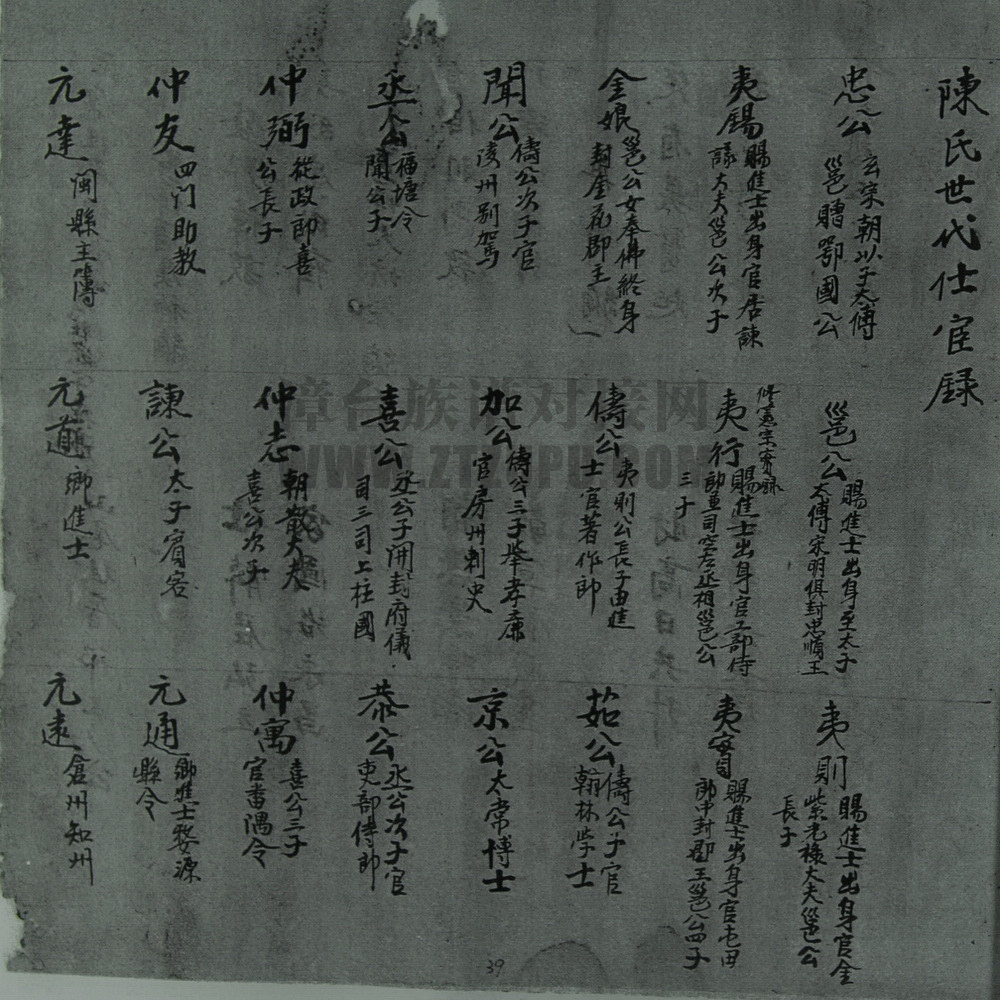 陳氏世代仕宦録
忠公 玄宗朝以子太傅
邕贈鄂國公
邕公 賜進士出身至太子
太傅宋明俱封忠順王
夷則 賜進士出身官金
紫光祿大夫邕公
長子
夷錫 賜進士出身官居諫
議大夫邕公次子
修憲宗實録
夷行 賜進士出身官工部侍
郎重司空左丞相邕公
三子
夷實 賜進士出身官屯田
郎中封郡王邕公四子
金娘 邕公女奉佛終身
封金花郡主
儔公 夷則公長子由進
士官著作郎
茹公 儔公子官
翰林学士
聞公 儔公次子官
陵州别駕
加公 儔公三子舉孝廉
官房州刺史
京公 太常博士
丞公 福塘令
聞公子
喜公 丞公子開封府儀
司三司上柱國
恭公 丞公次子官
吏部侍郎
仲弼 從政郎喜
公長子
仲志 朝散大夫
喜公次子
仲寓 喜公三子
官番隅令
仲友 四门助教
諫公 太子賓客
元通 鄉進士婺源
縣令
元達 閩縣主簿
元 鄉進士
元遠 倉州知州
39
漳台族谱对接网
WWW.ZTZUPU.COM